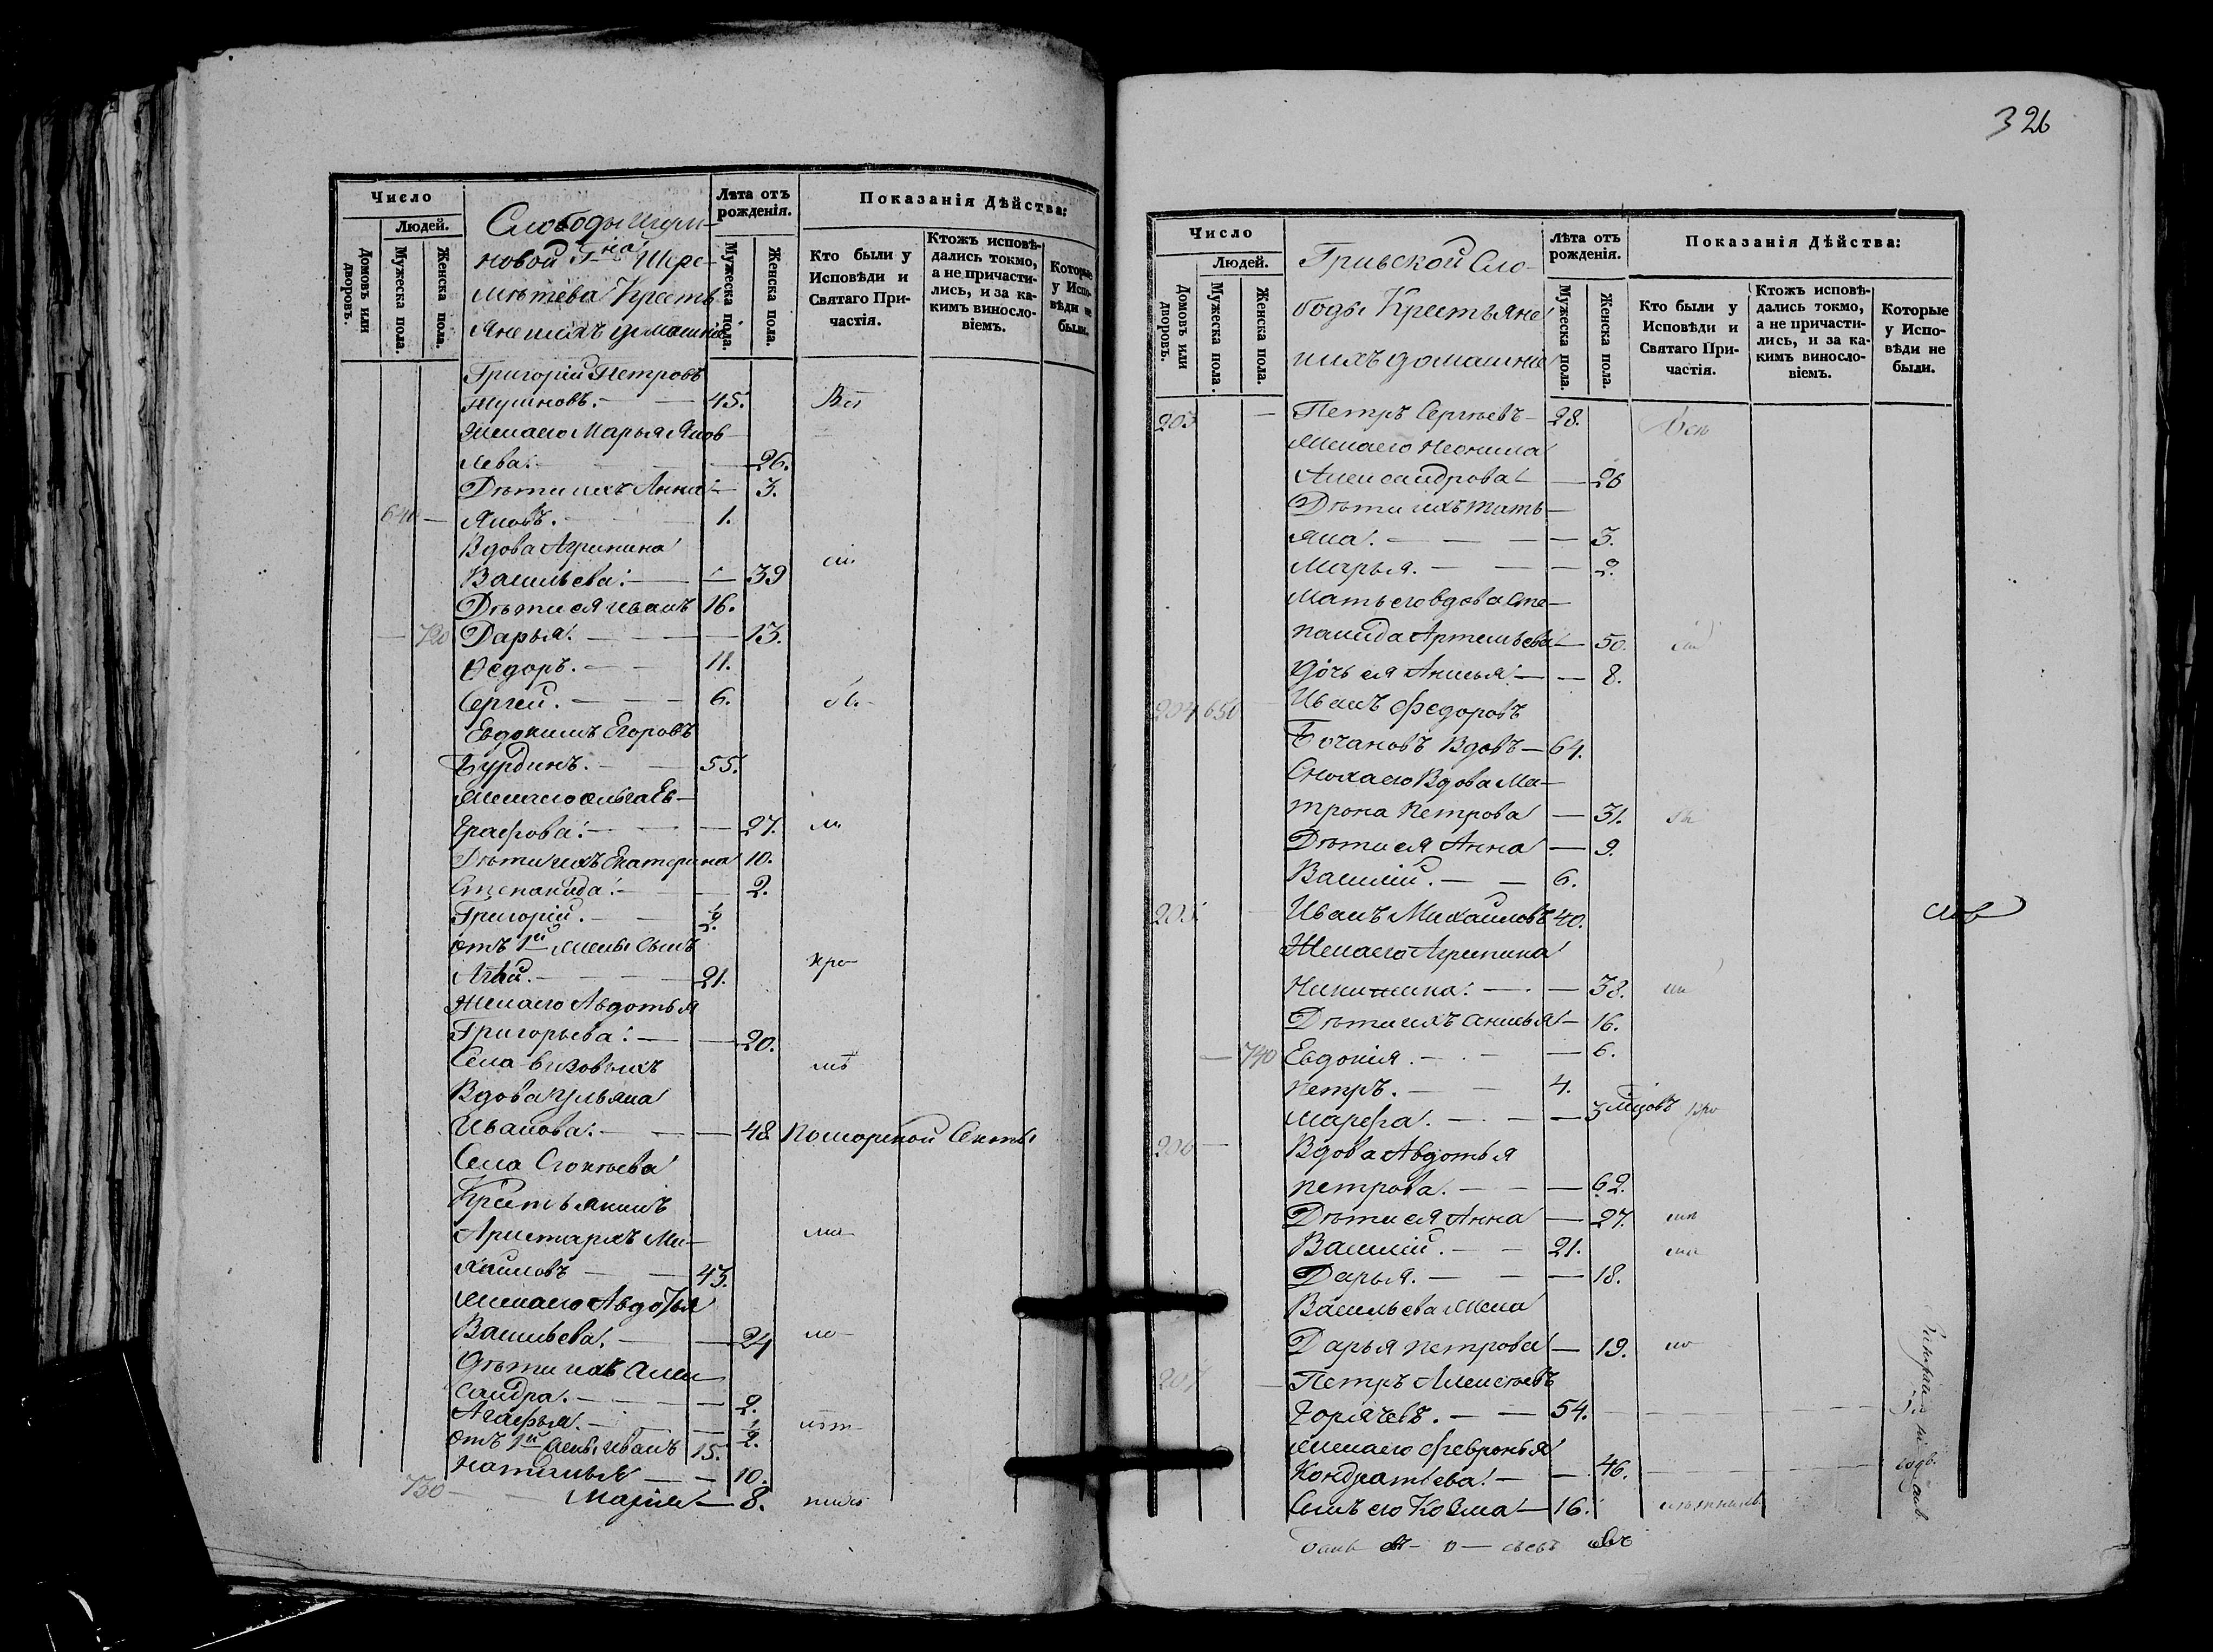 Число
Людей.
Домовъ или дворовъ.
Мужеска пола.
Женска пола.
Слободы
новой Г-на Шере-
метева Крестья
яне ихъ домашніе
Лѣта отъ рожденія.
Мужеска пола.
Женска пола.
Показанія Дѣйства:
Кто были у Исповѣди и Святаго Причастія.
Ктожъ исповѣдались токмо, а не причастились, и за какимъ винословіемъ.
Которые у Исповѣди не были.
Григорій Петровъ
45.
Жена его Марья Яков-
лева. 26.
Дѣти ихъ Анна 3.
640 Яковъ. 1.
Вдова Агрипина
Васильева. 39
Дѣти ея Иванъ 16.
720 Дарья. 13.
Ѳедоръ. 11.
Сергей. 6.
Евдокимъ Егоровъ
Бурдинъ. 55.
Жена его Ольга Ев-
графова. 27.
Дѣти ихъ Екатерина 10.
Степанида. 2.
Григорій. 1/2.
Отъ 1й жены сынъ
21.
Жена его Авдотья
Григорьева. 20.
Села
Вдова Ульяна
Иванова. 48 Поморской Секты
Села
Крестьянинъ
Аристархъ Ми-
хайловъ 43.
Жена его Авдотья
Васильева. 24
Дѣти ихъ Алек
сандра. 2.
Агафья. 1/2.
Отъ 1й жены Иванъ 15.
Наталья 10.
730 Марія 8.
326
Число
Людей.
Домовъ или дворовъ.
Мужеска пола.
Женска пола.
Гривской Сло-
боды Крестьяне
ихъ домашніе
Лѣта отъ рожденія.
Мужеска пола.
Женска пола.
Показанія Дѣйства:
Кто были у Исповѣди и Святаго Причастія.
Ктожъ исповѣдались токмо, а не причастились, и за какимъ винословіемъ.
Которые у Исповѣди не были.
203 Петръ Сергѣевъ 28.
Жена его Неонила
Александрова 26
Дѣти ихъ Тать-
яна. 3.
Марья. 2.
Мать его вдова Сте-
панида Артемьева 50.
Дочь ея Анисья 8.
204 650 Иванъ Федоровъ
Бочановъ Вдовъ 64.
Сноха его Вдова Ма-
трона Петрова 31.
Дѣти ея Анна 9.
Василій. 6.
205 Иванъ Михаиловъ 40.
Жена его Агрипина
Никитина. 38.
Дѣти ихъ Анисья 16.
740 Евдокія. 6.
Петръ. 4.
Марфа. 3
206 Вдова Авдотья
Петрова. 62.
Дѣти ея Анна 27.
Василій. 21.
Дарья. 18.
Васильева жена
Дарья Петрова 19.
207 Петръ Алексѣевъ
Горячевъ. 54.
Жена его Февронья
Кондратьева. 46.
Сынъ его Козма 16.